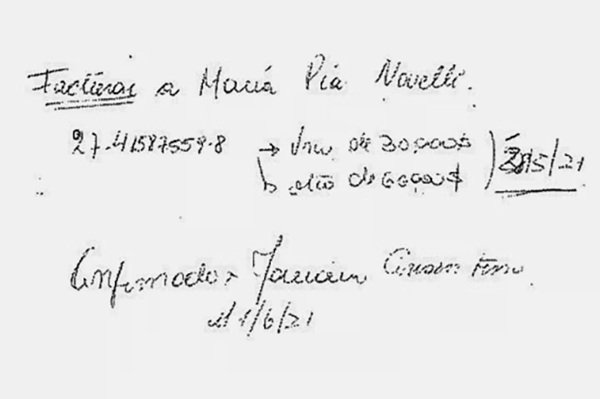 Facturas a María Pía Novelli.
27-41587559-8 → Una de 30.000$
otra de 60000$ 5/21
Confirmado x
el 1/6/21